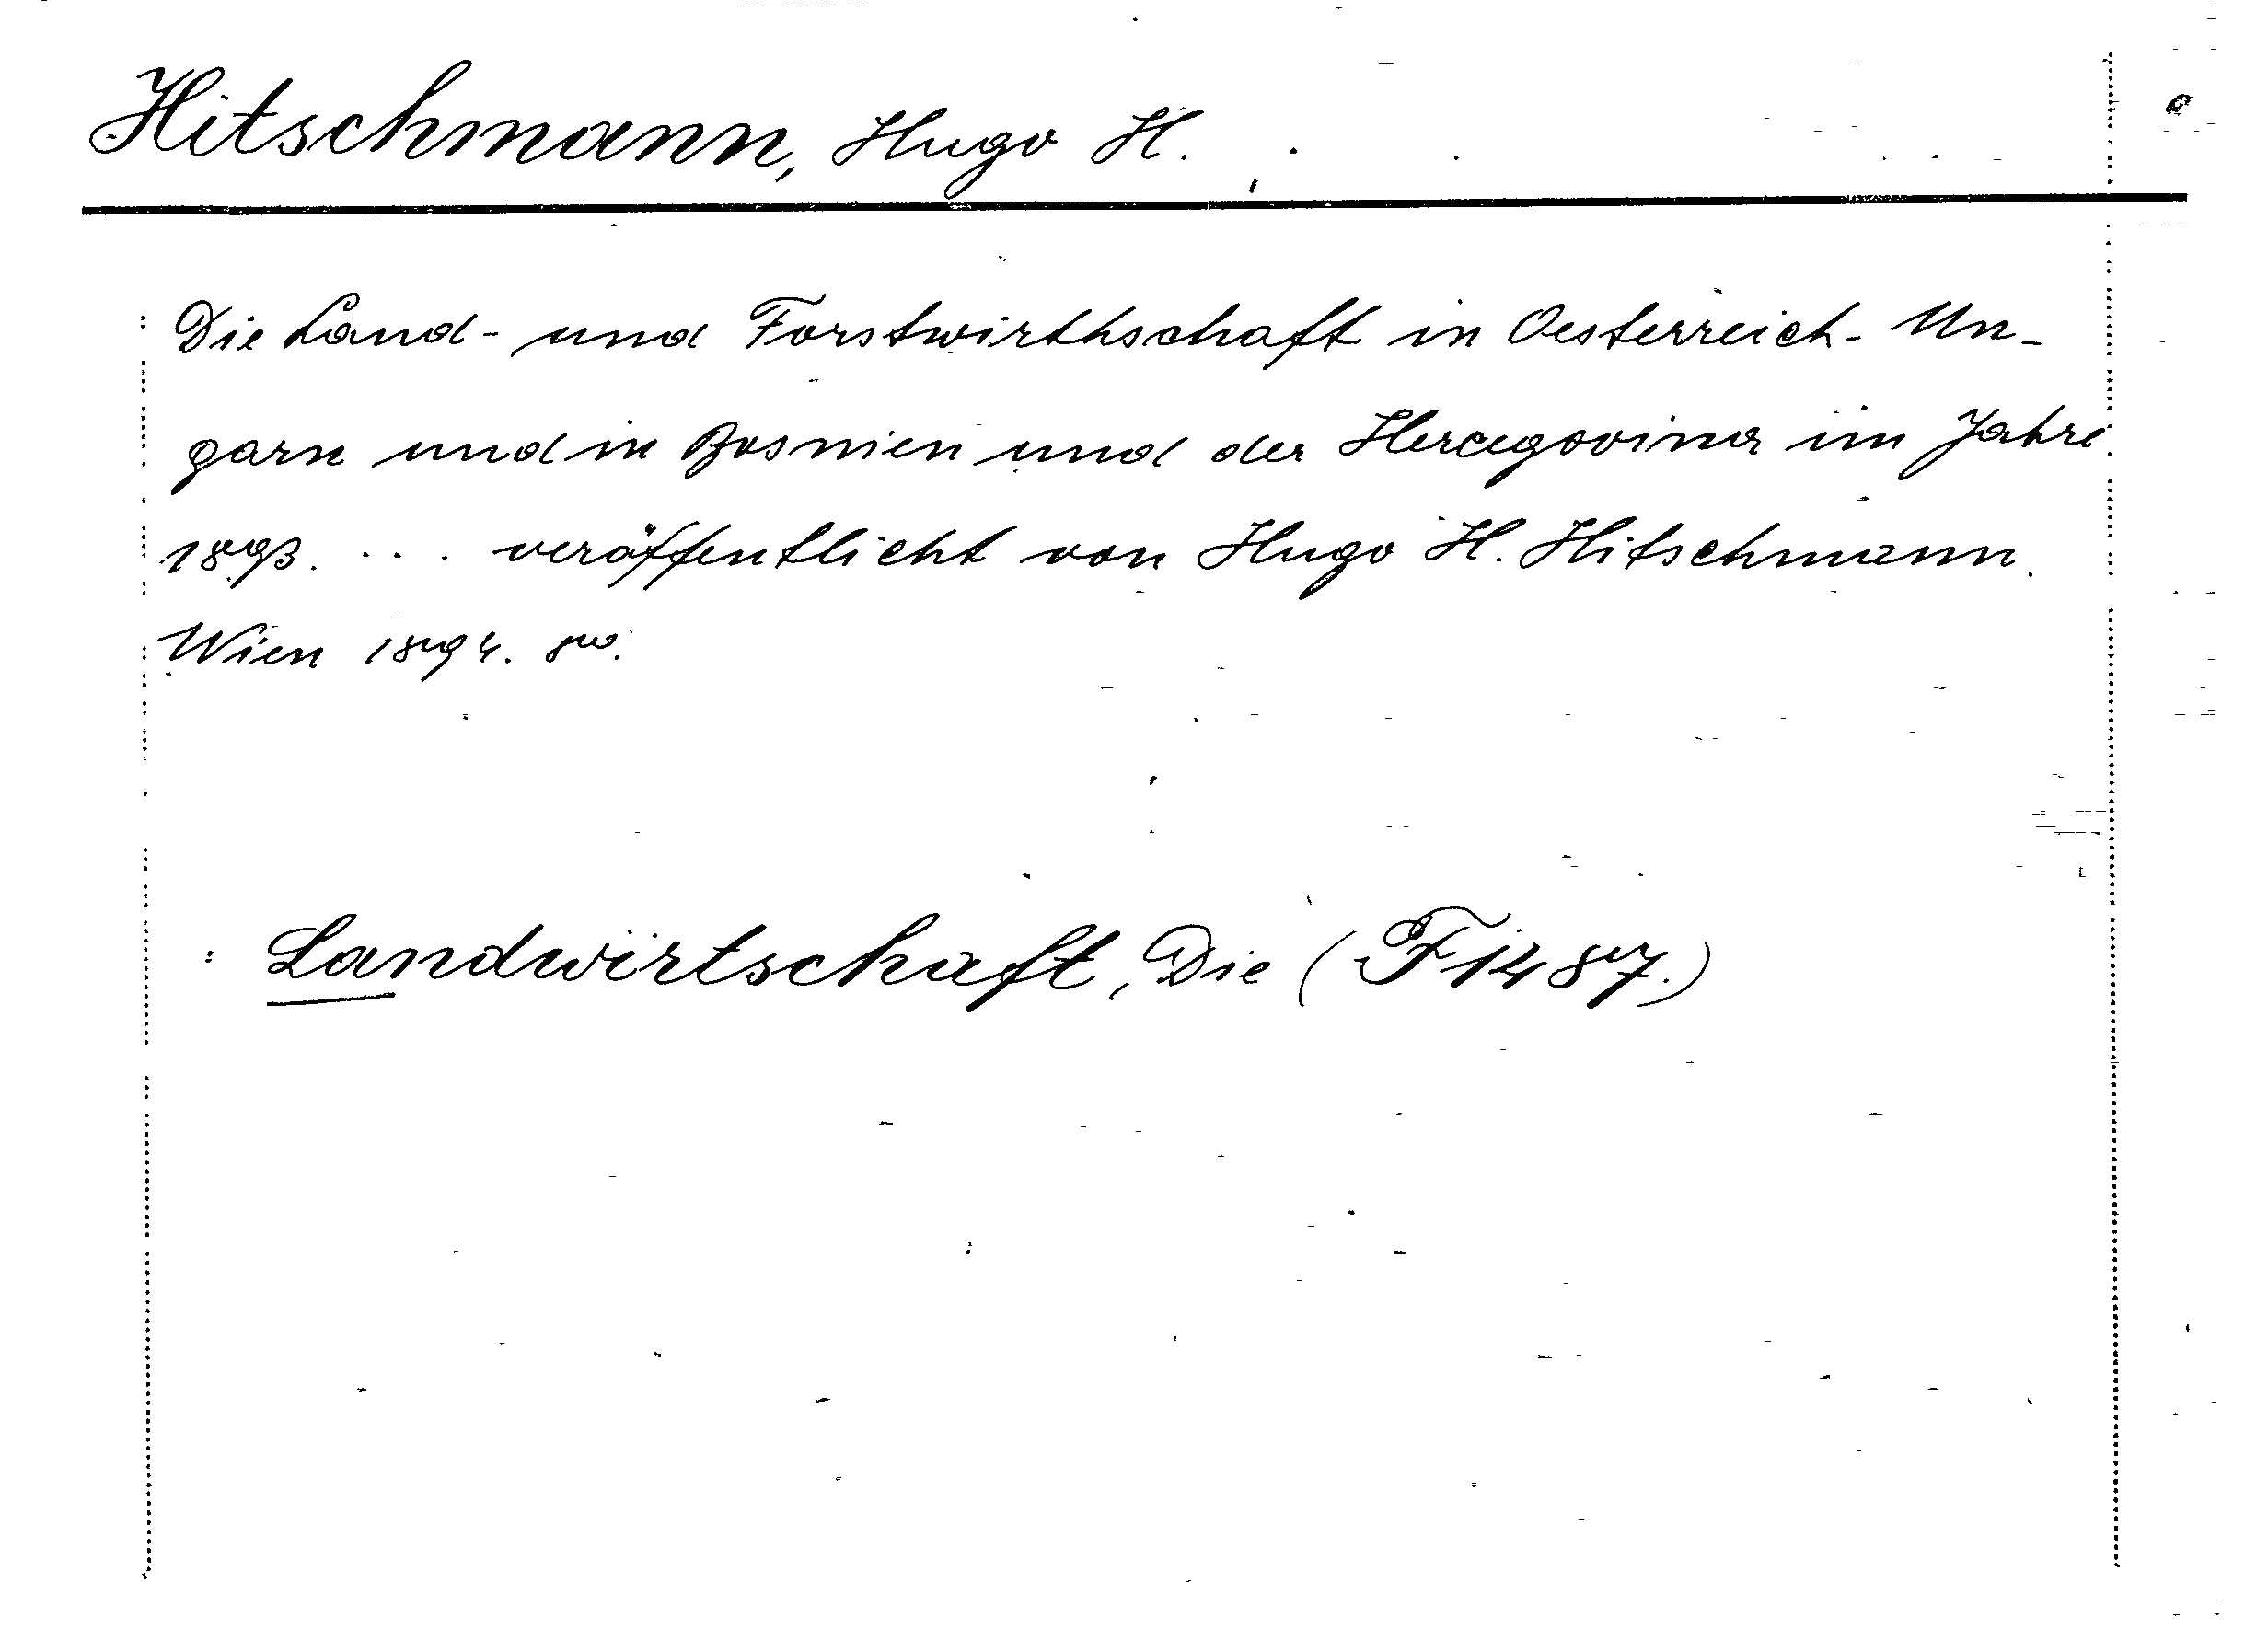 Hitschmann, Hugo H.
Die Land- und Forstwirthschaft in Oesterreich-Un-
garn und in Bosnien und der Hercegovina im Jahre
1893. ... veröffentlicht von Hugo H. Hitschmann.
Wien 1894. 8vo.
Landwirtschaft, Die (F1487.)